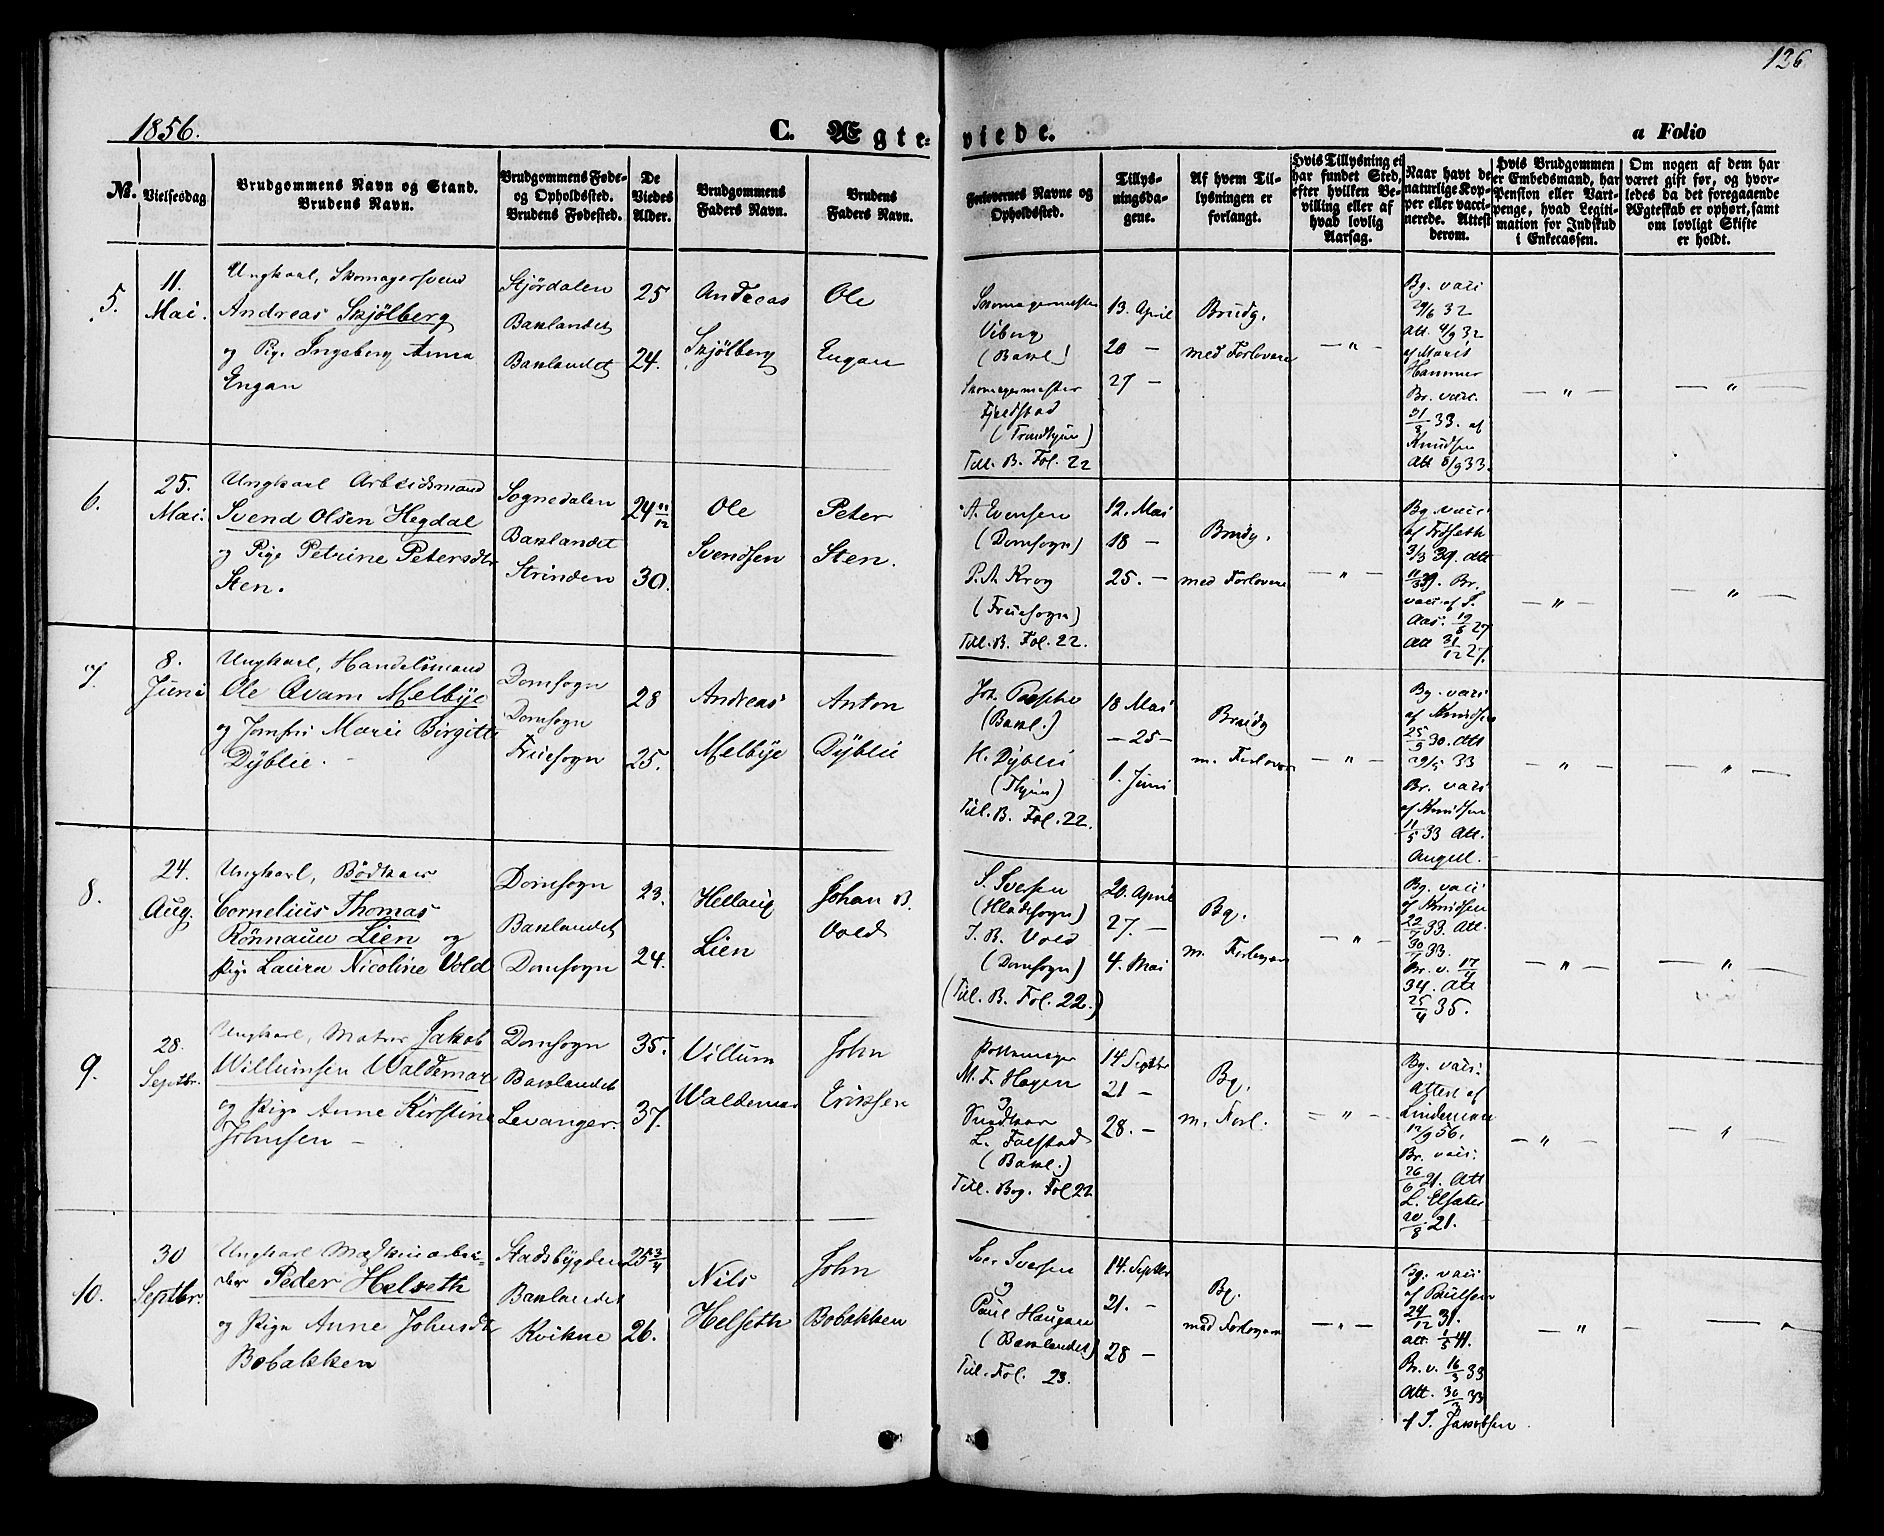 126
1856.
C. Ægteviede.
a Folio
No.
Vielsesdag
Brudgommens Navn og Stand.
Brudens Navn.
Brudgommens Føde-
og Opholdssted.
Brudens Fødested.
De
Viedes
Alder.
Brudgommens
Faders Navn.
Brudens
Faders Navn.
Forlovernes Navne og
Opholdssted.
Tillys-
ningsda-
gene.
Af hvem Til-
lysningen er
forlangt.
Hvis Tillysning ei
har fundet Sted,
efter hvilken Be-
villing eller af
hvad lovlig
Aarsag.
Naar havt de
naturlige Kop-
per eller vacci-
nerede. Attest
derom.
Hvis Brudgommen
er Embedsmand, har
Pension eller Vart-
penge, hvad Legiti-
mation for Indskud
i Enkecassen.
Om nogen af dem har
været gift før, og hvor-
ledes da det foregaaende
Ægteskab er ophørt, samt
om lovligt Skifte
er holdt.
5.
11.
Mai.
Ungkarl, Skomagersvend
Andreas Skjølberg
og Pige Ingeberg Anna
Engan
Stjørdalen
Baklandet
Baklandet
25
24.
Andreas
Skjølberg
Ole
Engan
Skomagermester
Viberg
(Bakl.)
Skomagermester
Fjeldstad
(Trondhjem)
Till. B. Fol. 22
13. April
20 —
27 —
Brudg.
med Forlovere
— " —
Bg. vacc.
29/6 32
Att. 4/9 32
af
Hammer
Br. vacc.
31/3 33. af
Knudsen
Att 5/9 33.
— " —
— " —
6.
25.
Mai.
Ungkarl Arbeidsmand
Svend Olsen Hegdal
og Pige Petrine Petersdtr
Sten.
Sognedalen
Baklandet
Strinden
24 11/12
30.
Ole
Svendsen
Peter
Sten.
A. Evensen
(Domsogn)
P. A. Krog
(Fruesogn)
Till. B. Fol. 22.
12. Mai
18 —
25. —
Brudg.
med Forlovere
— " —
Bg. vacc.
af Frøseth
3/3 39. Att
11/3 39. Br.
vacc. af S.
Aas. 19/5 27
Att 31/12 27.
— " —
— " —
7.
8.
Juni
Ungkarl, Handelsmand
Ole Qvam Melbye
og Jomfru Marie Birgitte
Dyblie.
Domsogn
Domsogn
Fruesogn
28
25.
Andreas
Melbye
Anton
Dyblie
Joh.
(Bakl.)
H. Dyblie
(Thjem)
Till. B. Fol. 22.
18 Mai
— 25 —
1. Juni
Brudg
m. Forlovere
— " —
Bg. vacc.
af Knudsen
25/3 30. Att
29/5 33
Br. vacc.
af Knudsen
11/5 33 Att.
Angell.
— " —
— " —
8.
24.
Aug.
Ungkarl, Bødker
Cornelius Thomas
Rønnauw Lien og
Pige Laura Nicoline Vold
Domsogn
Baklandet
Domsogn
23.
24.
Hellauf
Lien
Johan B.
Vold
S. Iversen
(Hladesogn)
J. B. Vold
(Domsogn)
(Till. B. Fol. 22.)
20. April
27. —
4. Mai
Bg.
m. Forlovere
— " —
Bg. vacc.
af Knudsen
22/7 33. Att.
30/7 33.
Br. v. 17/4
34. Att
25/4 35.
— " —
— " —
9.
28.
Septbr.
Ungkarl, Matros Jakob
Willumsen Waldemar
og Pige Anne Kirstine
Johnsen —
Domsogn
Baklandet
Levanger.
35.
37.
Villum
Waldemar
John
Eriksen
Pottemager
M. F. Hagen
og
Snedker
L. Falstad
(Bakl.)
Till. Bog. Fol 22
14 Septbr
21 —
28. —
Bg.
m. Forl.
— " —
Bg. vacc.
Attest af
Lindeman
12/9 56.
Br. vacc.
26/6 21. Att
L. Elsater
20/8 21.
— " —
— " —
10.
30
Septbr.
Ungkarl Maskinarbei-
der Peder Helseth
og Pige Anne Johnsdtr
Bobakken
Stadsbygden
Baklandet
Kvikne
25 3/4
26.
Nils
Helseth
John
Bobakken
Iver Iversen
og
Paul Haugan
(Baklandet)
Till. Fol. 23.
14. Septbr
21. —
28 —
Bg.
med Forlovere
— " —
Bg. vacc
af Paulsen
24/12 31.
att. 1/5 41.
Br. v. 16/3 33
Att. 30/3 33
af S. Jacobsen
— " —
— " —